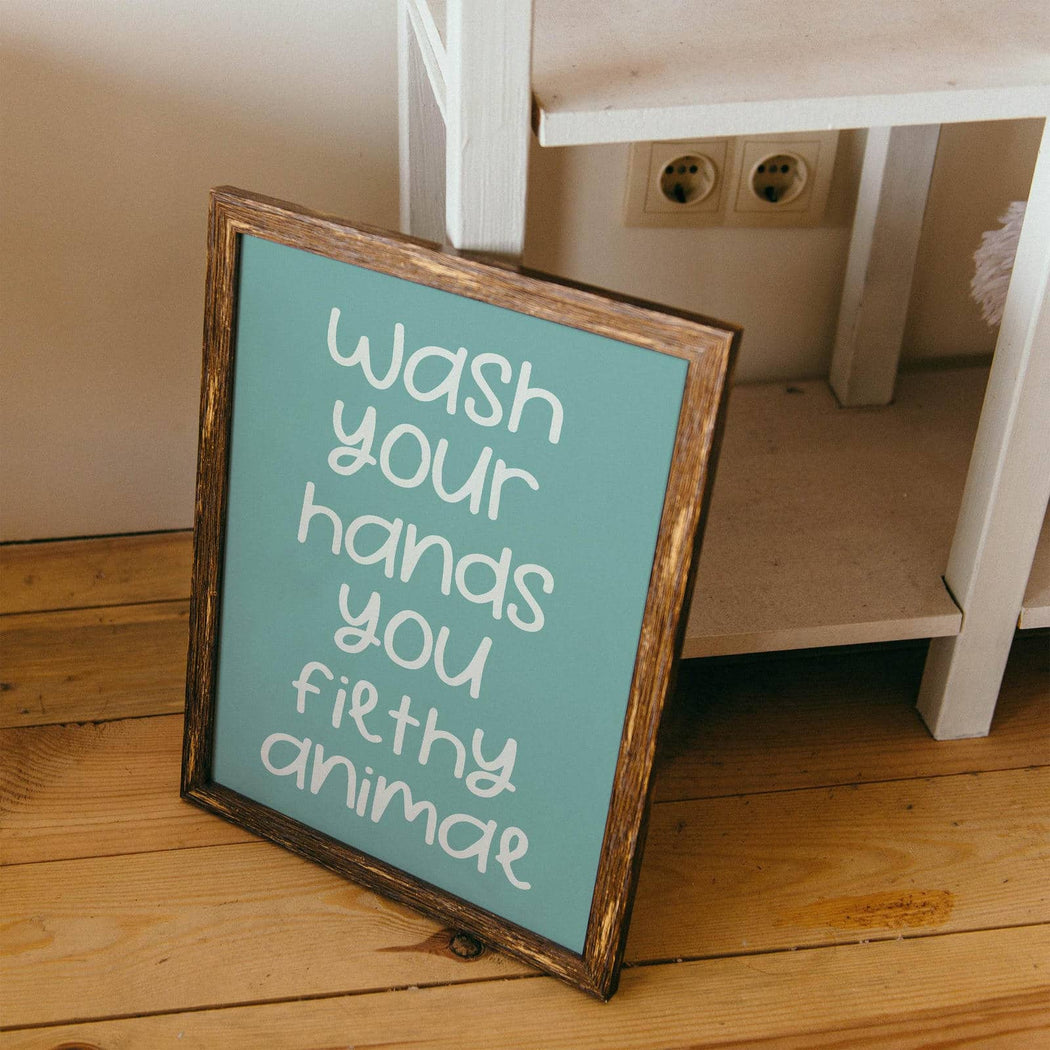 wash
your
hands
you
filthy
animal